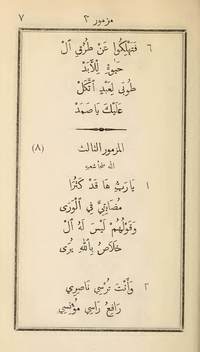 مزمور ٢ ٧
٦ فَتَهْلِكُوا عَنْ طُرْقِي ٱلْ
حَيٰوةِ لِلْأَبَدْ
طُوبَى لِعَبْدٍ ٱتَّكَلْ
عَلَيْكَ يَا صَمَدْ
المزمور الثالث (٨)
١ يَا رَبِّ هَا قَدْ كَثُرَا
مُضَايِقِيَّ فِي ٱلْوَرَى
وَقَوْلُهُمْ لَيْسَ لَهُ ٱلْ
خَلَاصُ بِٱللّٰهِ يُرَى
٢ وَأَنْتَ تُرْسِي نَاصِرِي
رَافِعُ رَاسِي مُؤْنِسِي